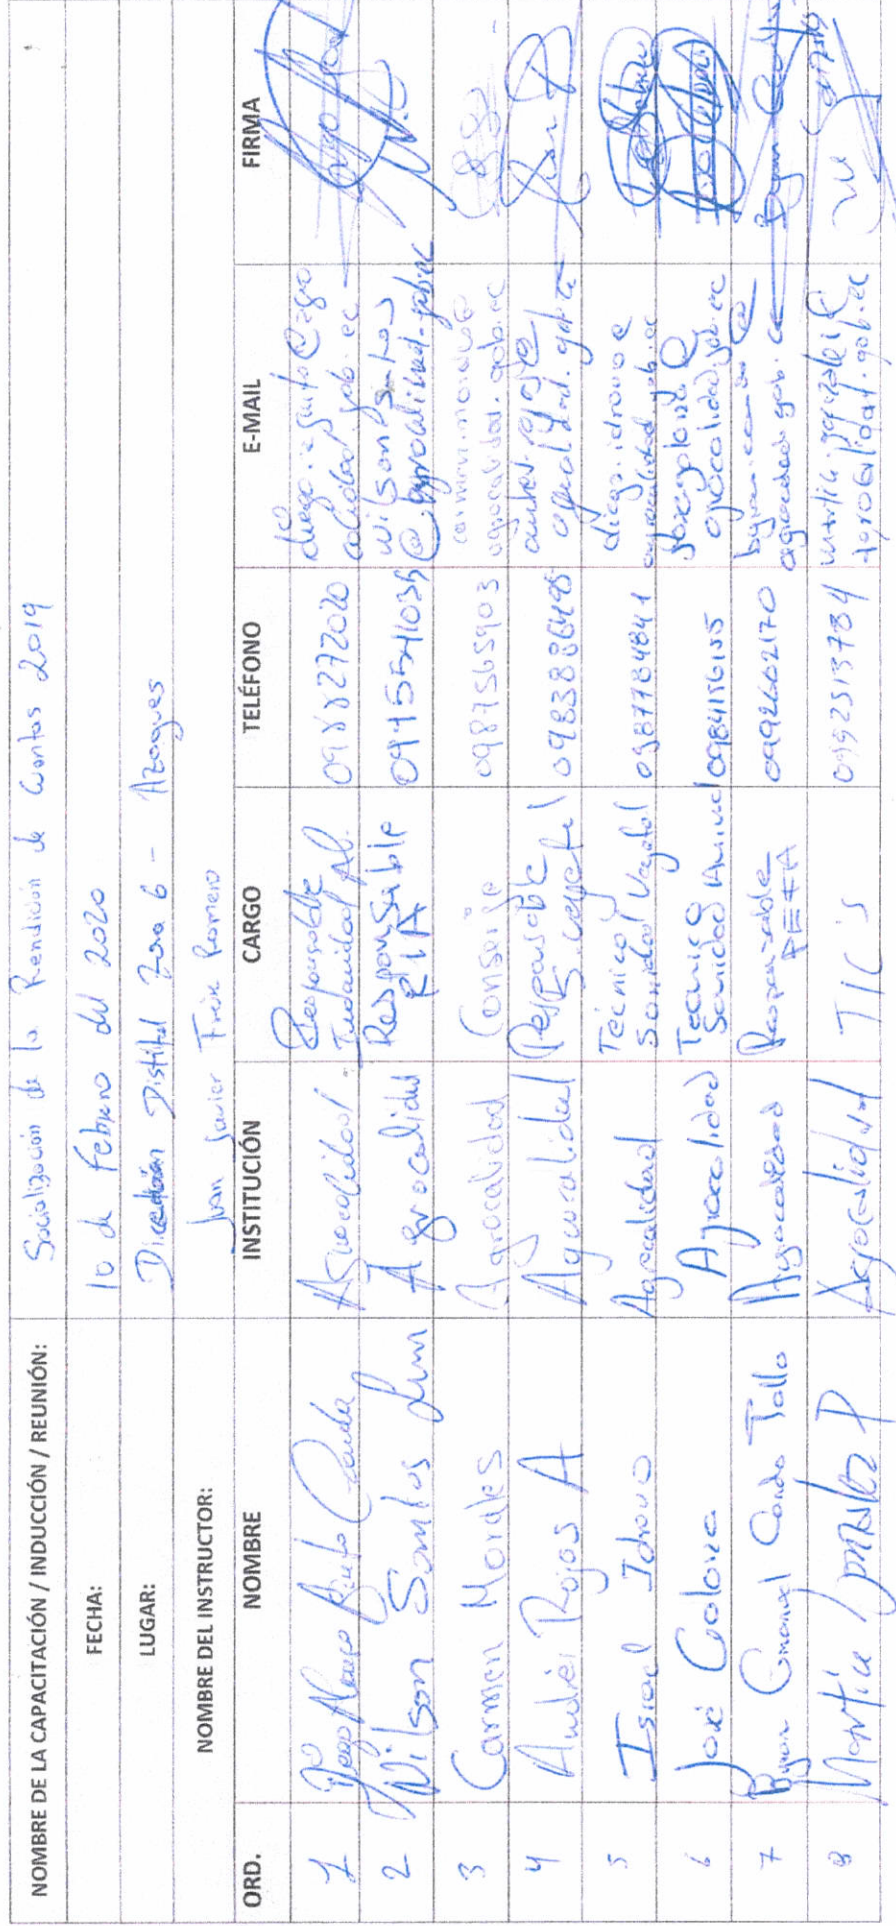 NOMBRE DE LA CAPACITACIÓN / INDUCCIÓN / REUNIÓN: Socialización de la Rendición de Cuentas 2019
FECHA: 10 de Febrero del 2020
LUGAR: Dirección Distital Zona 6 - Azogues
NOMBRE DEL INSTRUCTOR: Juan Javier Freire Romero
ORD. NOMBRE INSTITUCIÓN CARGO TELÉFONO E-MAIL FIRMA
1 Agrocalidad Responsable
Inocuidad Al.
2 Wilson Santos Agrocalidad Responsable
RIA
wilson.santos
@agrocalidad.gob.ec
3 Carmen Morales Agrocalidad Conserje 0987565903 carmen.morales@
agrocalidad.gob.ec
4 Andrés Rojas A Agrocalidad Responsable
S. Vegetal
0983886495
5 Israel Idrovo Agrocalidad Técnico
Sanidad Vegetal
0987784841 diego.idrovo@
agrocalidad.gob.ec
6 José Colona Agrocalidad Tecnico
Sanidad Animal
0984156155
agrocalidad.gob.ec
7 Byron Conde Agrocalidad Responsable
0992602170 byron.conde@
agrocalidad.gob.ec
8 Martín González P Agrocalidad TIC's 0992513784 martin.gonzalez@
agrocalidad.gob.ec